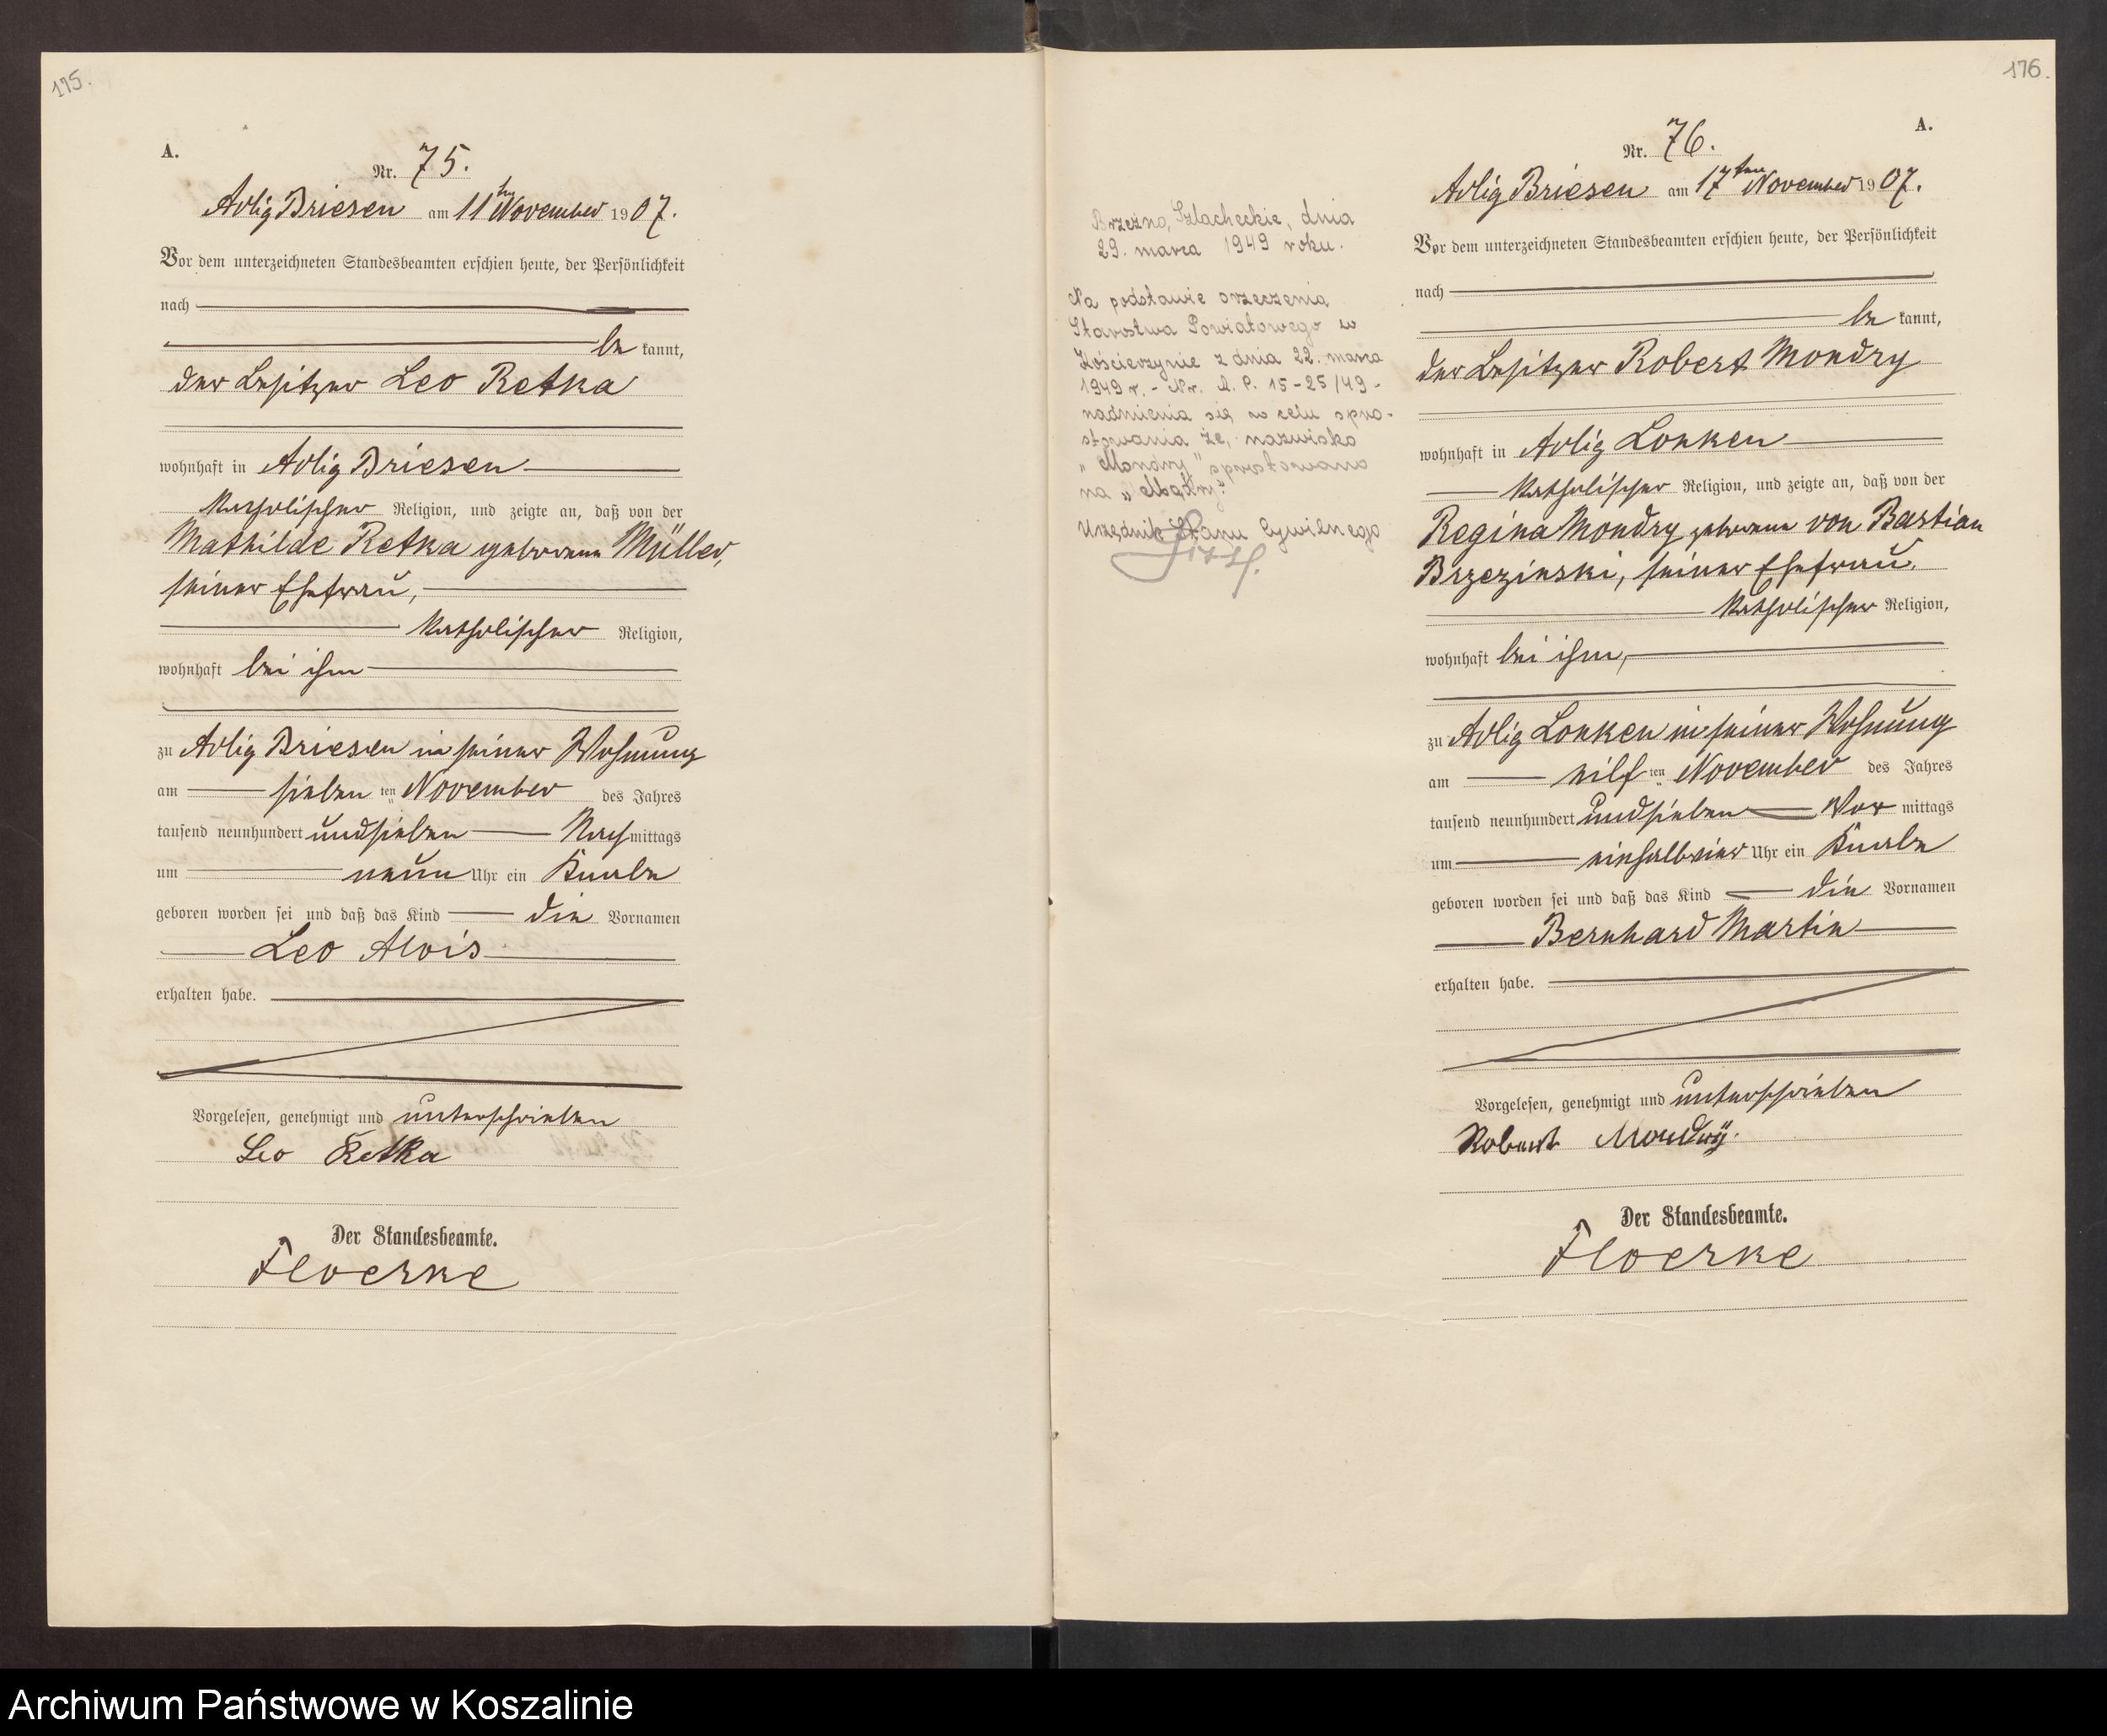 175.
A.
Nr. 75.
Adlig Briesen am 11ten November 1907.
Vor dem unterzeichneten Standesbeamten erschien heute, der Persönlichkeit
nach
be kannt,
der Besitzer Leo Retka
wohnhaft in Adlig Briesen
katholischer Religion, und zeigte an, daß von der
Mathilde Retka geborenen Müller,
seiner Ehefrau,
katholischer Religion,
wohnhaft bei ihm
zu Adlig Briesen in seiner Wohnung
am sieben ten November des Jahres
tausend neunhundert und sieben Nach mittags
um neun Uhr ein Knabe
geboren worden sei und daß das Kind die Vornamen
Leo Alois
erhalten habe.
Vorgelesen, genehmigt und unterschrieben
Leo Retka
Der Standesbeamte.
Floerke
176.
A.
Nr. 76.
Adlig Briesen am 17ten November 1907.
Vor dem unterzeichneten Standesbeamten erschien heute, der Persönlichkeit
nach
be kannt,
der Besitzer Robert Mondry
wohnhaft in Adlig Lonken
katholischer Religion, und zeigte an, daß von der
Regina Mondry geborenen von Bastian
Brzezinski, seiner Ehefrau,
katholischer Religion,
wohnhaft bei ihm,
zu Adlig Lonken in seiner Wohnung
am eilf ten November des Jahres
tausend neunhundert und sieben Vor mittags
um einhalbvier Uhr ein Knabe
geboren worden sei und daß das Kind die Vornamen
Bernhard Martin
erhalten habe.
Vorgelesen, genehmigt und unterschrieben
Robert Mondry.
Der Standesbeamte.
Floerke
Brzeźno, Szlacheckie, dnia
29. marca 1949 roku.
Na podstawie orzeczenia
Starostwa Powiatowego w
Kościerzynie z dnia 22. marca
1949 r. - Nr. A. P. 15-25/49 -
nadmienia się w celu spro-
stowania że, nazwisko
"Mondry" sprostowano
na "Mądry".
Urzędnik Stanu Cywilnego
Archiwum Państwowe w Koszalinie